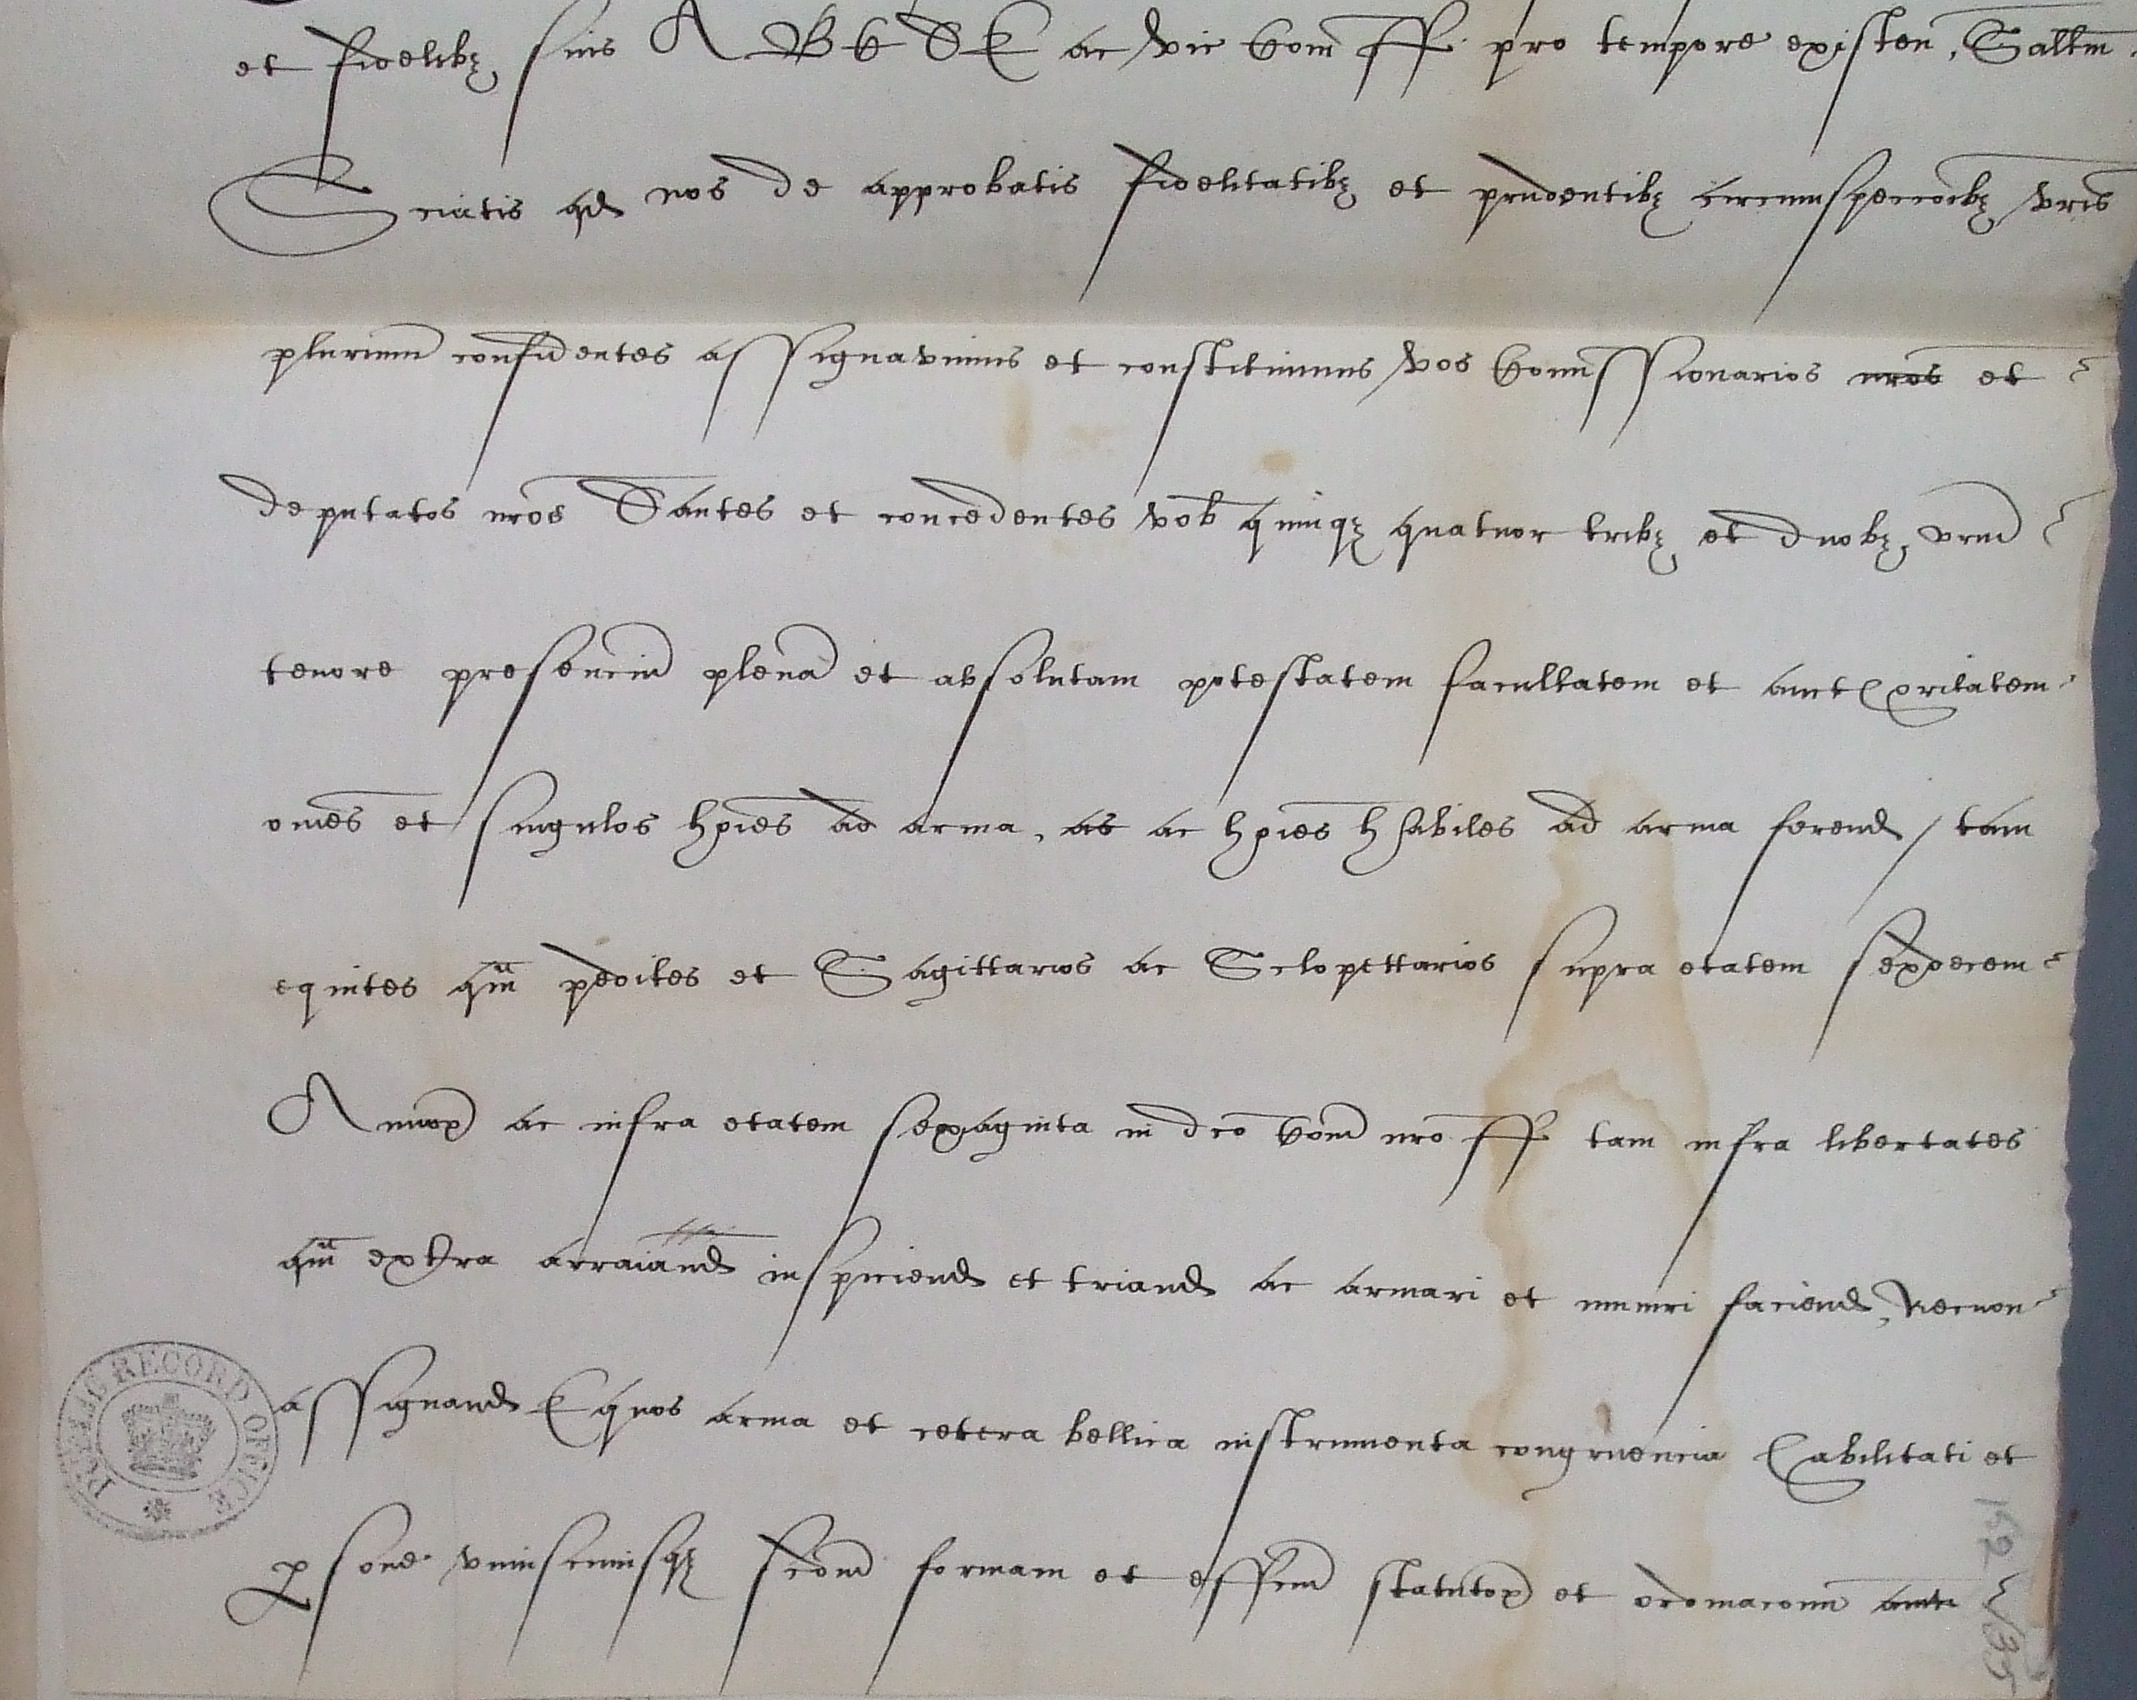 et fidelibȝ suis A B C D E ac vic Com̄ ff pro tempore existen̄, Sallt̄m
Sciatis qđ nos de approbatis fidelitatibȝ et prudentibȝ circumspeccōībȝ vr̄is
plurimū confidentes assignavimus et constituimus vos Com̄issionarios nr̄os et
deputatos nr̄os Dantes et concedentes vob̄ quinqȝ quatuor tribȝ et duobȝ vr̄m
tenore presenciū plenā et absolutam potestatem facultatem et aucthoritatem
om̄es et singulos ho̅i̅es ad arma, ab ac ho̅i̅es habiles ad arma ferend / tam
equites qm̄ pedites et Sagittarios ac Sclopettarios supra etatem sexdecem
Annoꝝ ac infra etatem sexaginta in dc̄o Com̄ nr̄o ff tam infra libertates
qm̄ extra arraiand inspiciend et triand ac armari et muniri faciend, Necnon
assignand Equos arma et cetera bellica instrumenta congruencia habilitati et
ꝑsone uniuscuiusqȝ scđm formam et effcm̄ statutoꝝ et ordinacōnu̅ ante
PUBLIC RECORD OFFICE
162
135